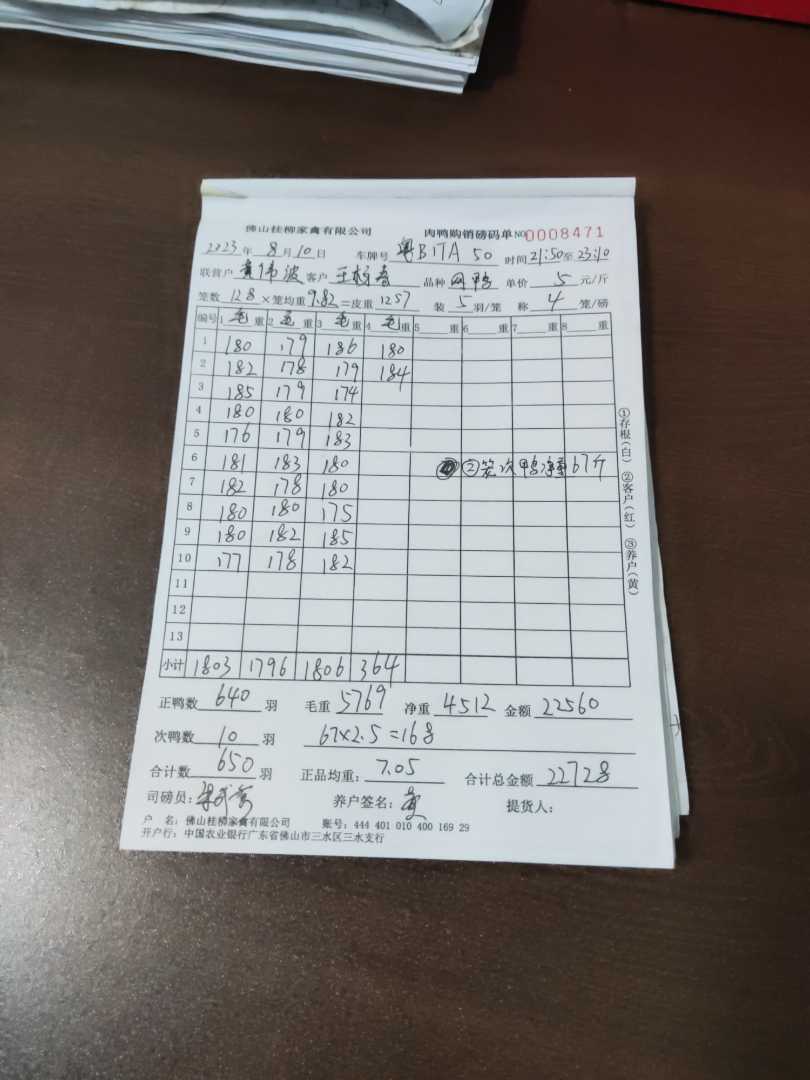 佛山桂柳家禽有限公司 肉鸭购销磅码单 NO 0008471
2023年8月10日 车牌号 粤B1TA50 时间 21:50至23:10
联营户 黄伟波 客户 王 品种 网鸭 单价 5 元/斤
笼数 128 ×笼均重 9.82 =皮重 1257 装 5 羽/笼 称 4 笼/磅
编号 1 毛重 2 毛重 3 毛重 4 毛重 5 重 6 重 7 重 8 重
1 180 179 186 180
2 182 178 179 184
3 185 179 174
4 180 180 182
5 176 179 183
6 181 183 180 ②笼次鸭净重67斤
7 182 178 180
8 180 180 175
9 180 182 185
10 177 178 182
11
12
13
小计 1803 1796 1806 364
①存根(白) ②客户(红) ③养户(黄)
正鸭数 640 羽 毛重 5769 净重 4512 金额 22560
次鸭数 10 羽 67×2.5=168
合计数 650 羽 正品均重: 7.05 合计总金额 22728
司磅员: 养户签名: 黄 提货人:
户 名: 佛山桂柳家禽有限公司 账号: 444 401 010 400 169 29
开户行: 中国农业银行广东省佛山市三水区三水支行